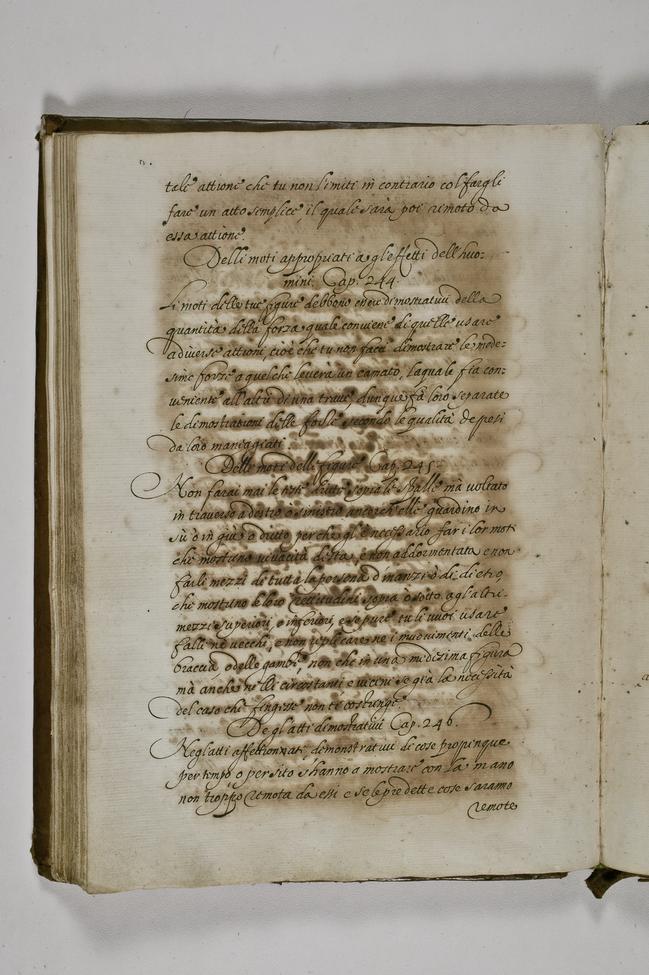 tale attione che tu non l'imiti in contrario col fargli
fare un atto semplice, il quale sara poi remoto da
essa attione.
Delli moti appropriati a gl'effetti dell'huo-
mini. Cap. 244.
Li moti delle tue figure debbono essere dimostrativi della
quantità della forza quale conviene di quelle usare
a diverse attioni, cioè che tu non facci dimostrare le mede-
sime forze a quel che leverà un camato, laquale fia con-
veniente all'altri di una trave, dunque fà loro separate
le dimostrationi delle forze secondo le qualità de pesi
da loro maneggiati.
Delli moti delle figure Cap. 245.
Non farai mai le teste dritte sopra le spalle mà voltato
in traverso a destro ò sinistro ancorch'elle guardino in
sù ò in giù o dritto perche gl'è necessario far i lor moti
che mostrino vivacità desta, e non addormentata e non
farli mezzi di tutta la persona d'inanzi ò di dietro,
che mostrino le loro rettitudini sopra ò sotto agl'altri
mezzi superiori, o inferiori, e se pure tu li vuoi usare
falli ne vecchi, e non replicare ne i muovimenti delle
braccia, o delle gambe, non che in una medesima figura
mà anche nelli circostanti e vicini se già la necessità
del caso che fingesse non te costringe.
De gl'atti dimostrativi Cap. 246.
Negl'atti affettionati, demonstrativi di cose propinque
per tempo, o per sito s'hanno a mostrare con la mano
non troppo remota da essi e se le predette cose saranno
remote